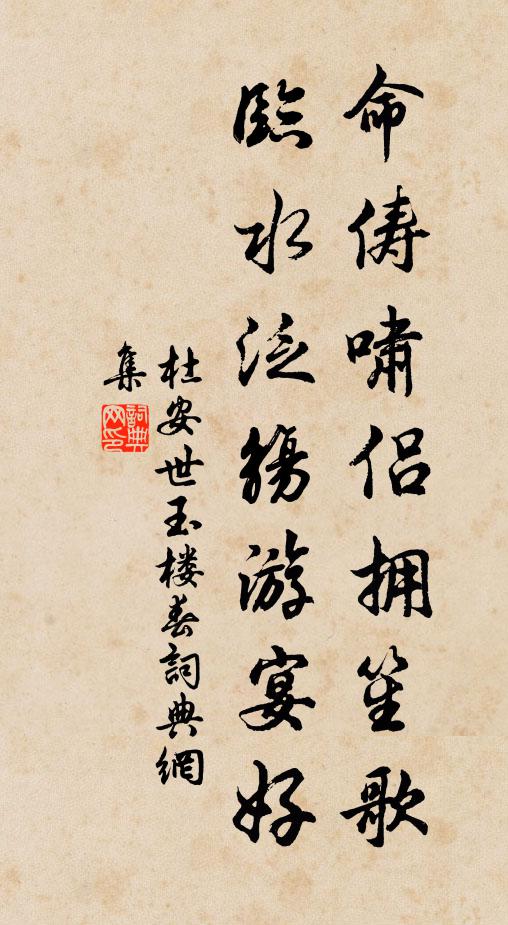 命俦啸侣拥笙歌
臨水泛觞游宴好
杜安世玉楼春詞典網
集
詞典
网印